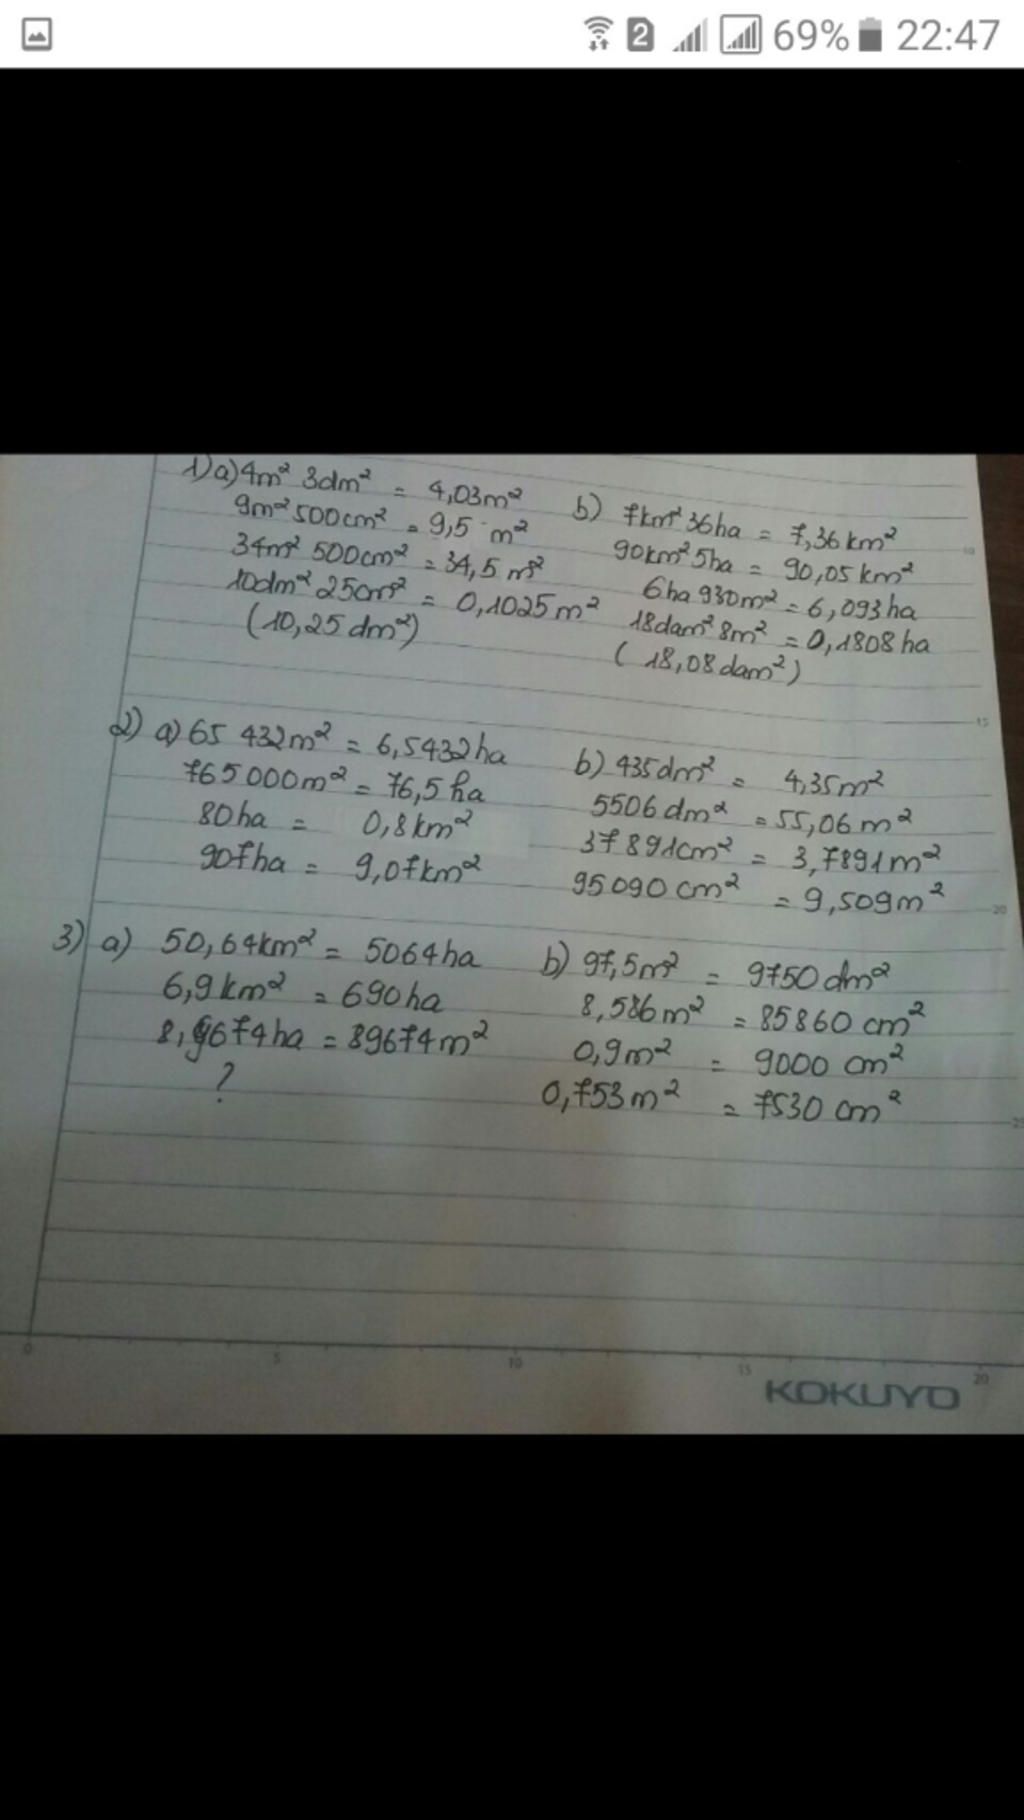 2 69% 22:47
1) a) 4m² 3dm² = 4,03m²
9m² 500cm² = 9,5 m²
34m² 500cm² = 34,5 m²
10dm² 25cm² = 0,1025 m²
(10,25 dm²)
b) 7km² 36ha = 7,36 km²
90km² 5ha = 90,05 km²
6ha 930m² = 6,093 ha
18dam² 8m² = 0,1808 ha
(18,08 dam²)
2) a) 65 432m² = 6,5432 ha
765 000m² = 76,5 ha
80ha = 0,8km²
907ha = 9,07km²
b) 435dm² = 4,35m²
5506 dm² = 55,06 m²
37 891cm² = 3,7891m²
95 090 cm² = 9,509m²
3) a) 50,64km² = 5064ha
6,9 km² = 690 ha
8,9674ha = 89674m²
?
b) 97,5m² = 9750 dm²
8,586 m² = 85860 cm²
0,9m² = 9000 cm²
0,753 m² = 7530 cm²
0 5 10 15 20
KOKUYO